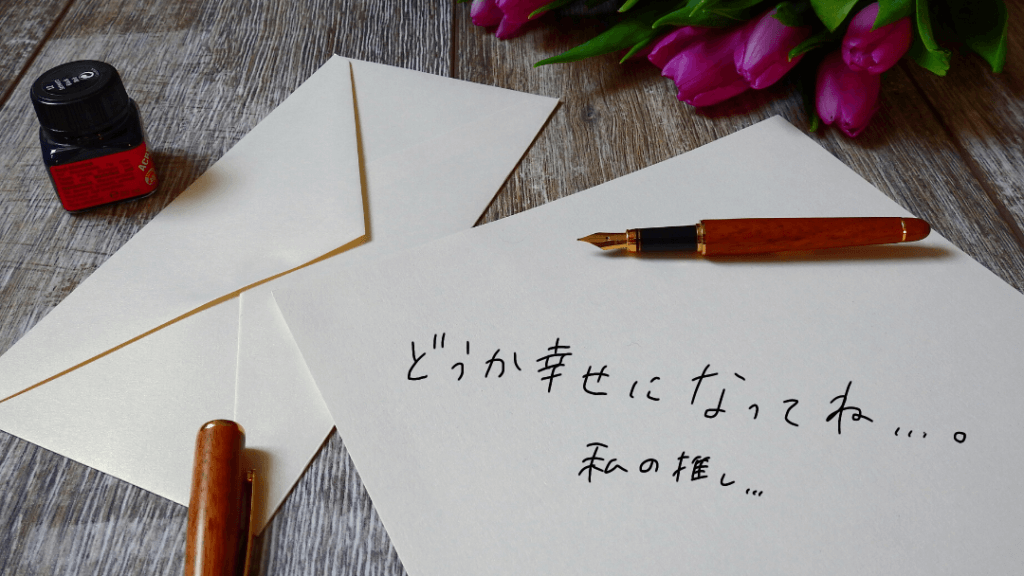 どうか幸せになってね...。
私の推し...